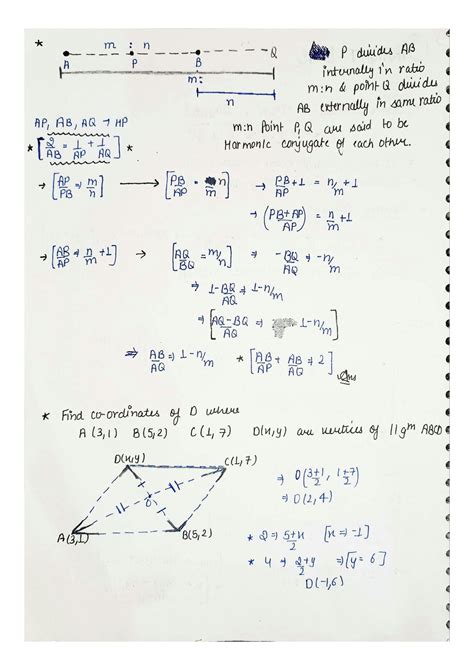 * m : n
A P B Q
n
P divides AB
internally in ratio
m:n & point Q divides
AB externally in same ratio
m:n Point P, Q are said to be
Harmonic conjugate of each other.
AP, AB, AQ → HP
* [2/AB = 1/AP + 1/AQ] *
→ [AP/PB ⇒ m/n] → [PB/AP = n/m] → PB/AP + 1 = n/m + 1
→ (PB+AP/AP) = n/m + 1
→ [AB/AP ⇒ n/m + 1] → [AQ/BQ = m/n] ⇒ -BQ/AQ ⇒ -n/m
⇒ 1-BQ/AQ ⇒ 1-n/m
⇒ [AQ-BQ/AQ ⇒ 1-n/m]
⇒ AB/AQ ⇒ 1-n/m * [AB/AP + AB/AQ ⇒ 2] Ans
* Find co-ordinates of D where
A(3,1) B(5,2) C(1,7) D(x,y) are vertices of ||gm ABCD
D(x,y) C(1,7)
O
A(3,1) B(5,2)
⇒ O(3+1/2, 1+7/2)
⇒ O(2,4)
* 2 ⇒ 5+x/2 [x ⇒ -1]
* 4 ⇒ 2+y/2 ⇒ [y = 6]
D(-1,6)